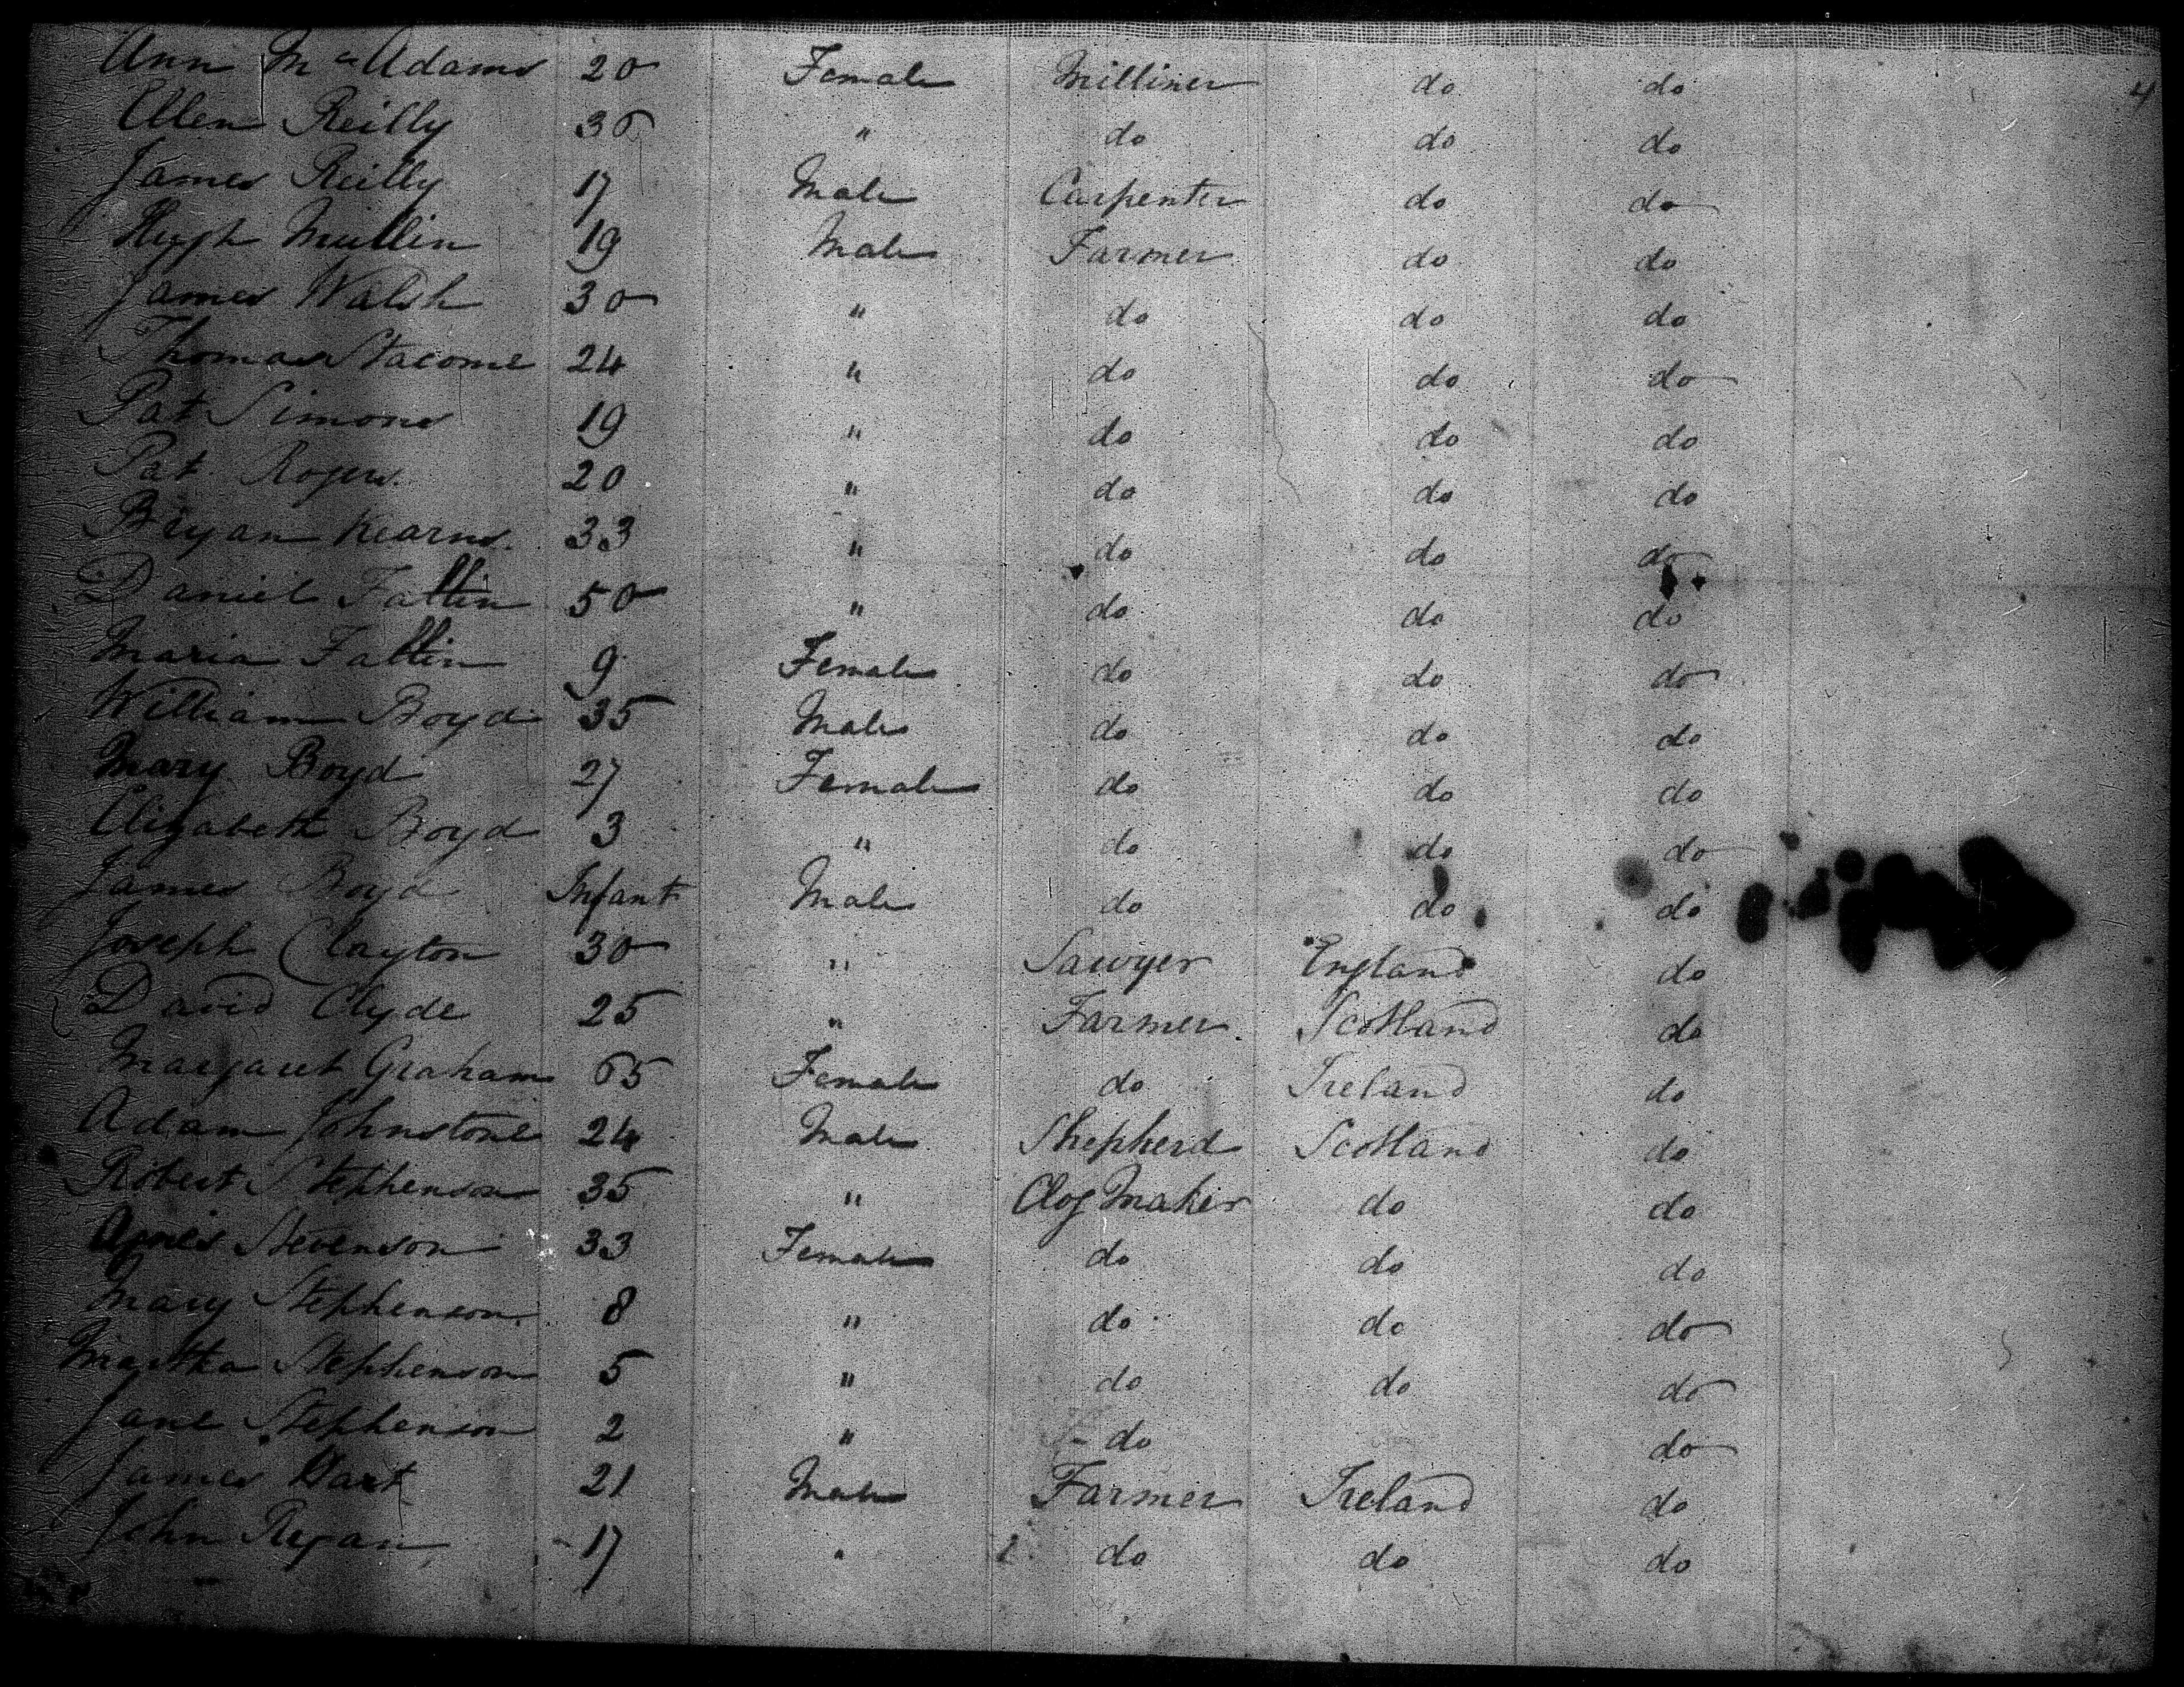 Ann McAdams 20 Female Milliner do do 4
Ellen Reilly 30 " do do do
James Reilly 17 Male Carpenter do do
Hugh Mullin 19 Male Farmer do do
James Walsh 30 " do do do
Thomas Stacome 24 " do do do
Pat Simons 19 " do do do
Pat Rogers 20 " do do do
Bryan Kearns 33 " do do do
Daniel Fallin 50 " do do do
Maria Fallin 9 Female do do do
William Boyd 35 Male do do do
Mary Boyd 27 Female do do do
Elizabeth Boyd 3 " do do do
James Boyd Infant Male do do do
Joseph Clayton 30 " Sawyer England do
David Clyde 25 " Farmer Scotland do
Margaret Graham 65 Female do Ireland do
Adam Johnstone 24 Male Shepherd Scotland do
Robert Stephenson 35 " Clog Maker do do
Agnes Stevenson 33 Female do do do
Mary Stephenson 8 " do do do
Martha Stephenson 5 " do do do
Jane Stephenson 2 " do do
James Hart 21 Male Farmer Ireland do
John Regan 17 " do do do